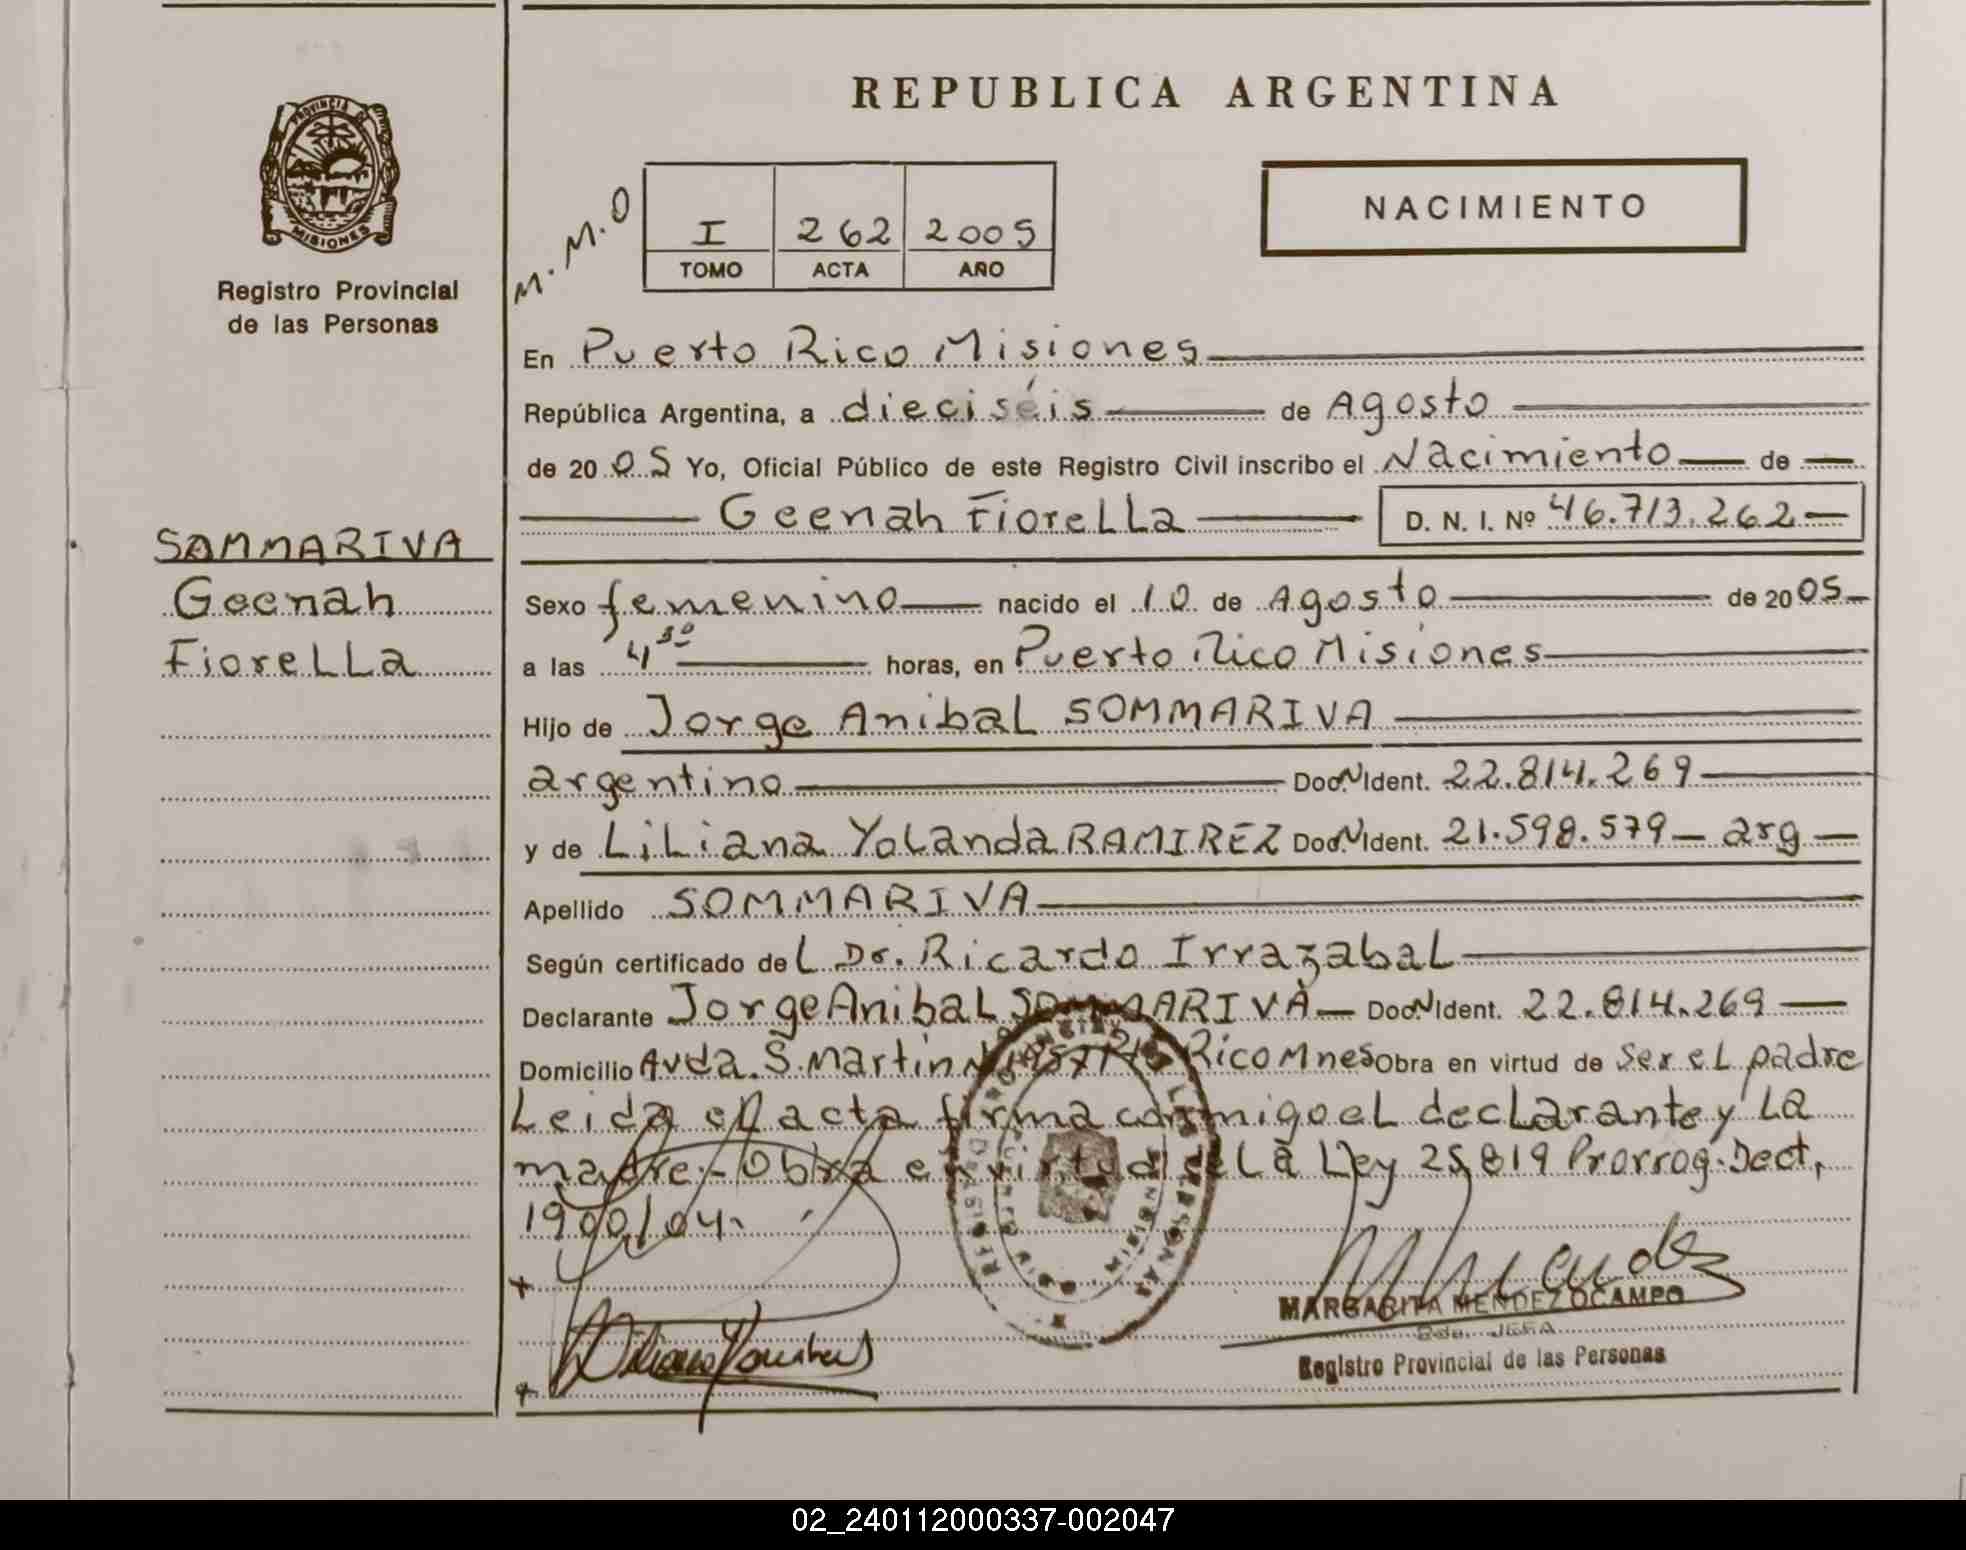 REPUBLICA ARGENTINA
PROVINCIA DE
MISIONES
Registro Provincial
de las Personas
M. M. O
I 262 2005
TOMO ACTA AÑO
NACIMIENTO
En Puerto Rico Misiones
República Argentina, a dieciséis de Agosto
de 20 05 Yo, Oficial Público de este Registro Civil inscribo el Nacimiento de
Geenah Fiorella D. N. I. Nº 46.713.262
SAMMARIVA
Geenah
Fiorella
Sexo femenino nacido el 10 de Agosto de 20 05
a las 4 30 horas, en Puerto Rico Misiones
Hijo de Jorge Anibal SOMMARIVA
argentino Doc. N Ident. 22.814.269
y de Liliana Yolanda RAMIREZ Doc. N Ident. 21.598.579 - arg
Apellido SOMMARIVA
Según certificado del Dr. Ricardo Irrazabal
Declarante Jorge Anibal SOMMARIVA Doc. N Ident. 22.814.269
Domicilio Avda. S. Martin Rico Mnes Obra en virtud de ser el padre
Leida el acta firma conmigo el declarante y la
madre.- Obra en virtud de la Ley 25.819 Prorrog. Dect,
1900/04.
MARGARITA MENDEZ OCAMPO
JEFA
Registro Provincial de las Personas
02_240112000337-002047